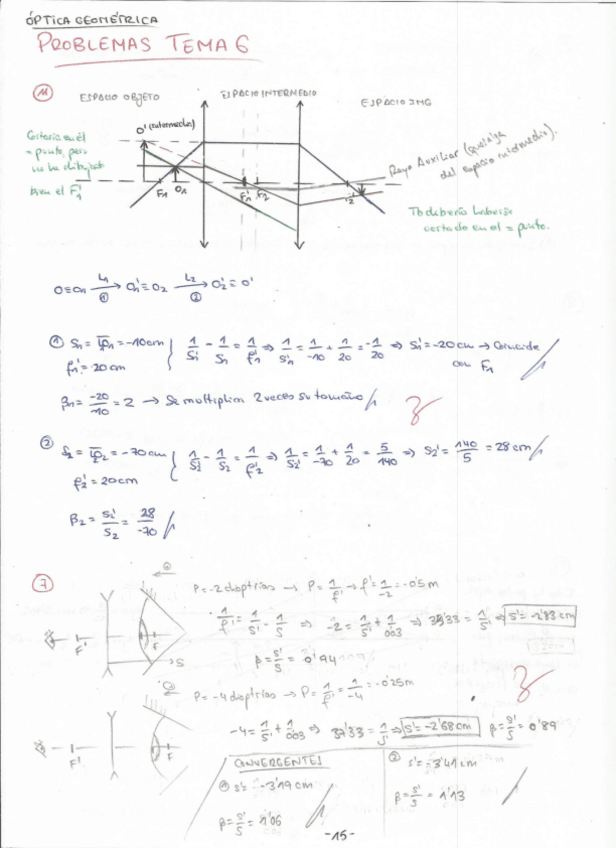 ÓPTICA GEOMÉTRICA
PROBLEMAS TEMA 6
11 ESPACIO OBJETO ESPACIO INTERMEDIO ESPACIO IMG
O' (intermedia)
Cortaría en el
= punto, pero
no he dibujado
bien el F₁'
F₁ O₁ F₁' F₂ -2'
Rayo Auxiliar (que viaja
del espacio intermedio).
Tb debería haberse
cortado en el = punto.
O≡O₁ L₁→ ① O₁'≡O₂ L₂→ ② O₂'≡O'
① S₁ = = -10cm { 1/S₁' - 1/S₁ = 1/f₁' ⇒ 1/S₁' = 1/-10 + 1/20 = -1/20 ⇒ S₁' = -20cm → Coincide
f₁' = 20cm con F₁
β₁ = -20/-10 = 2 → Se multiplica 2 veces su tamaño
② S₂ = = -70cm { 1/S₂' - 1/S₂ = 1/f₂' ⇒ 1/S₂' = 1/-70 + 1/20 = 5/140 ⇒ S₂' = 140/5 = 28cm
f₂' = 20cm
β₂ = S₂'/S₂ = 28/-70
7 P = -2 dioptrías → P = 1/f' → f' = 1/-2 = -0'5 m
F' F S
1/f' = 1/S' - 1/S ⇒ -2 = 1/S' + 1/003 ⇒ 35'33 = 1/S' ⇒ S' = -2'83 cm
β = S'/S = 0'94
P = -4 dioptrías → P = 1/f' = 1/-4 = -0'25m
F' F
-4 = 1/S' + 1/003 ⇒ 37'33 = 1/S' ⇒ S' = -2'68 cm β = S'/S = 0'89
CONVERGENTES
① S' = -3'19 cm ② S' = -3'41 cm
β = S'/S = 1'06 β = S'/S = 1'13
-15-